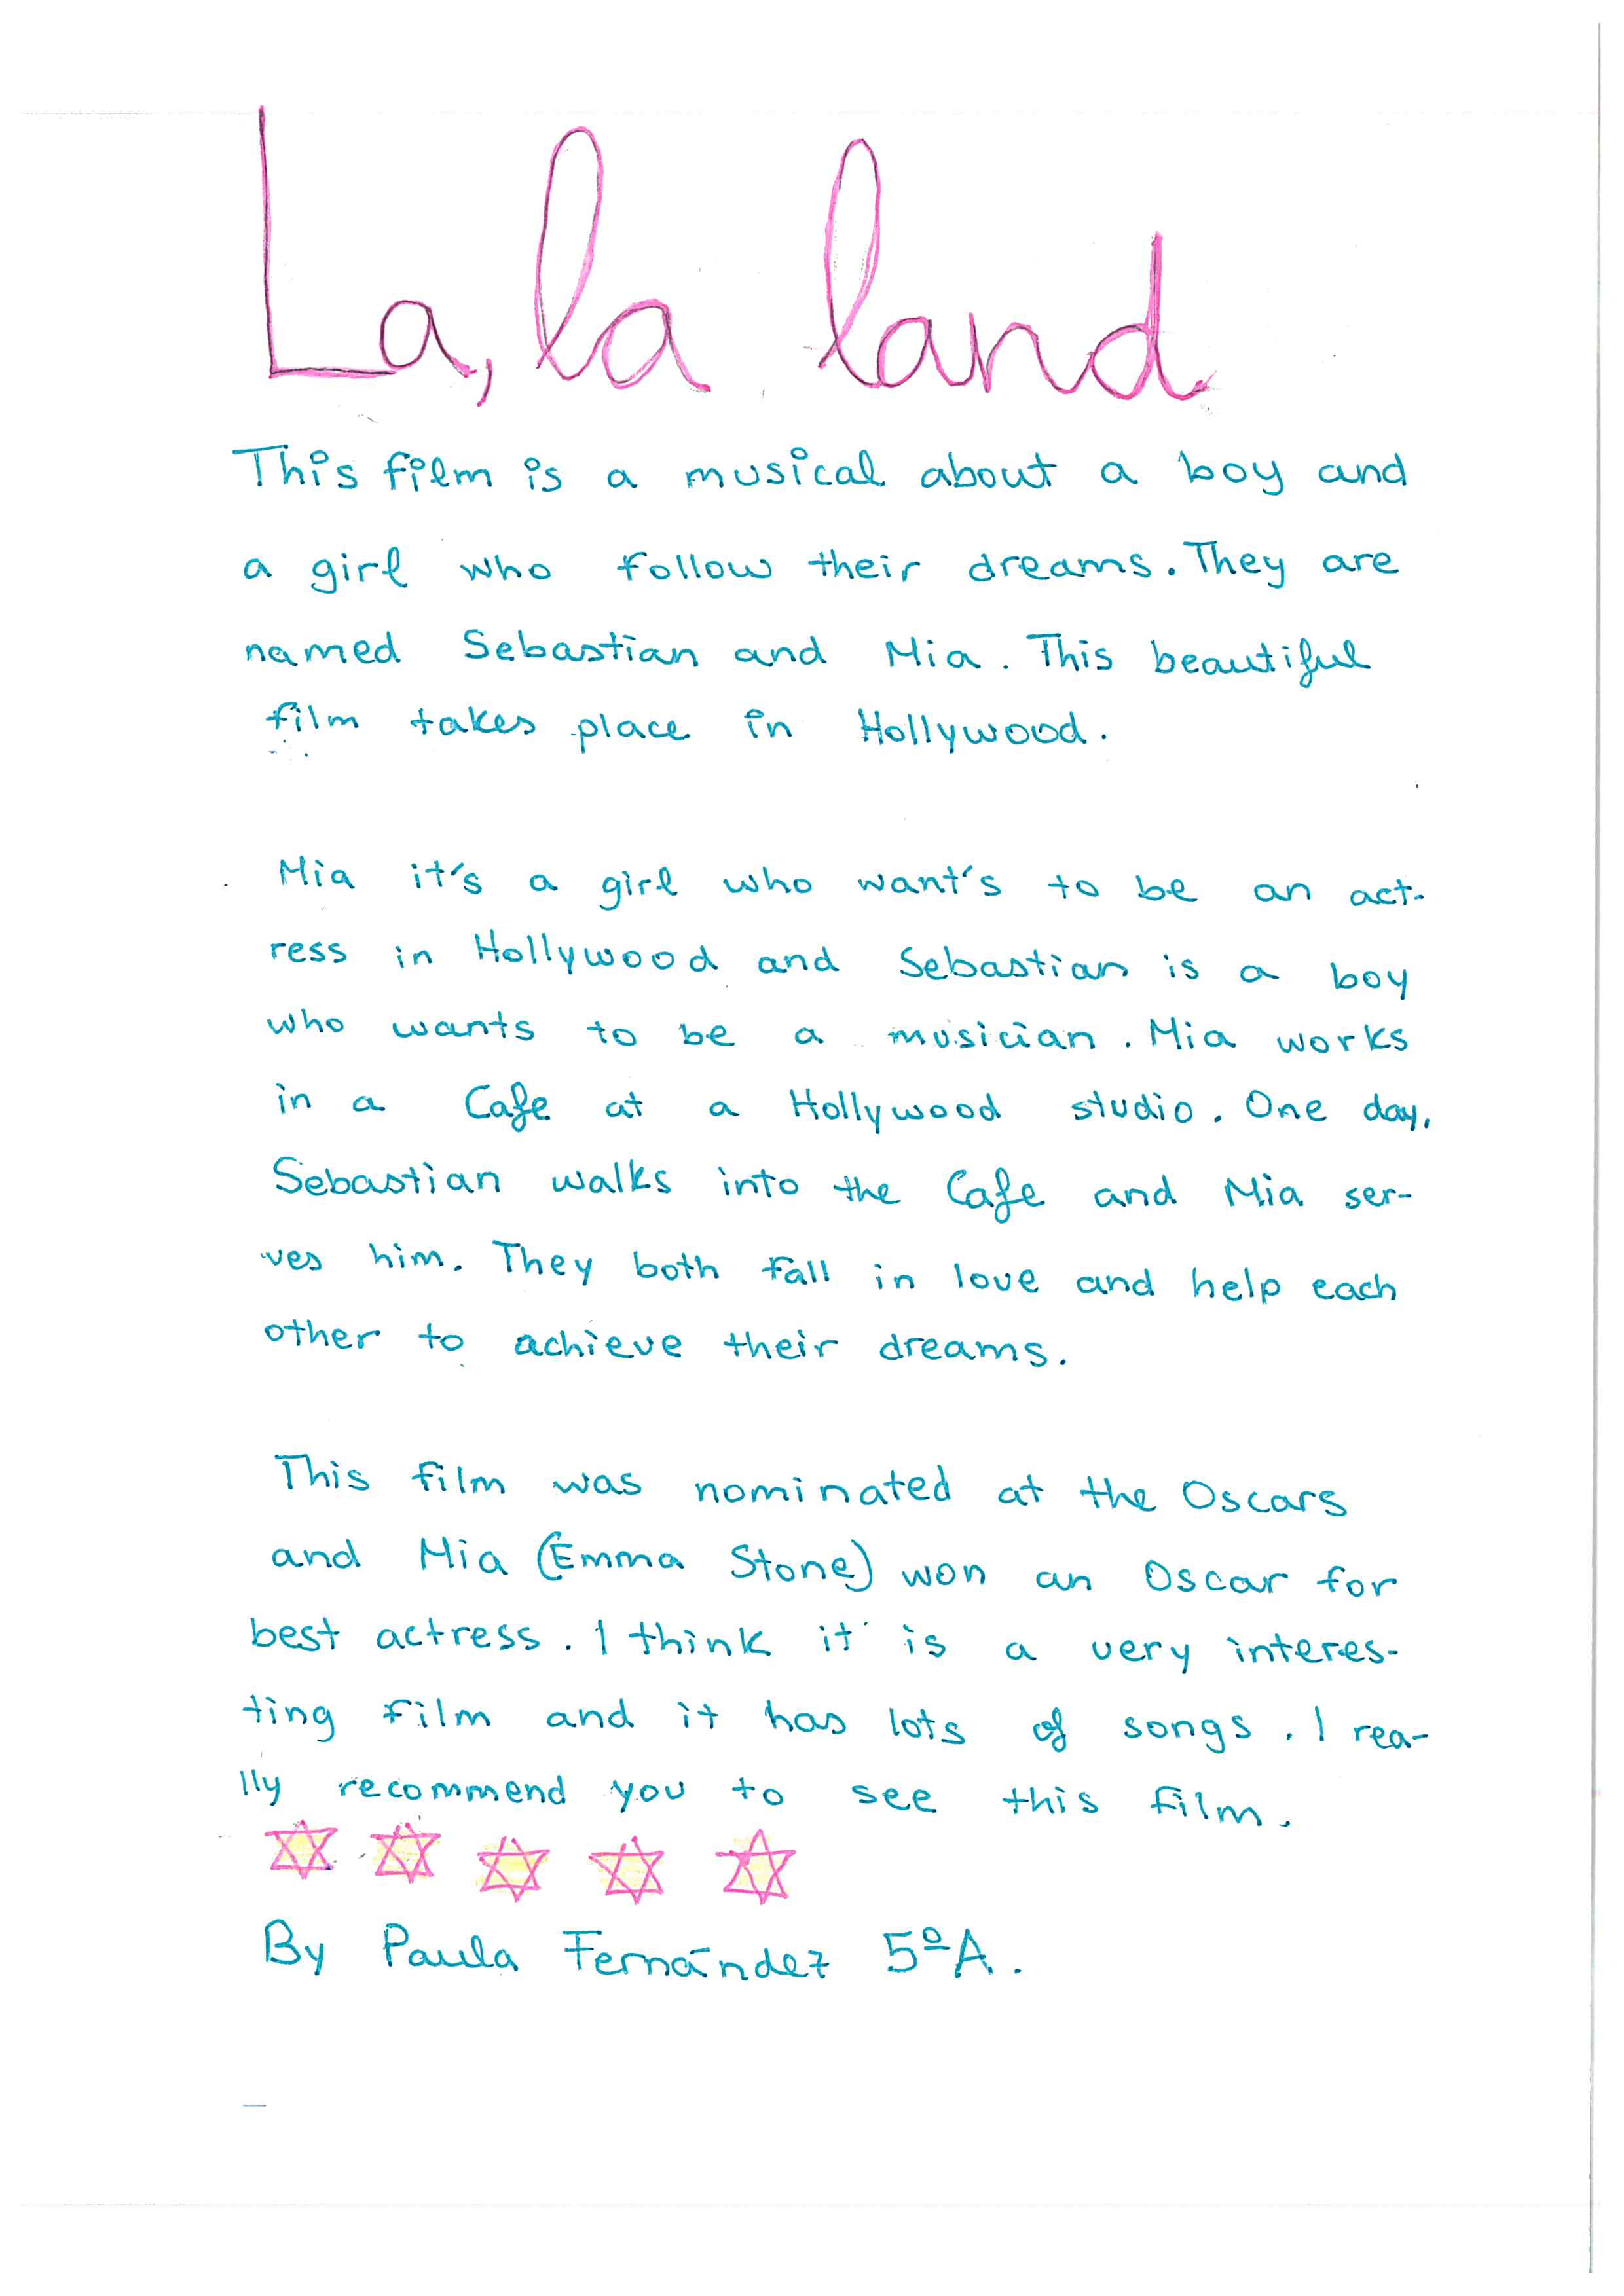 La, la land
This film is a musical about a boy and
a girl who follow their dreams. They are
named Sebastian and Mia. This beautiful
film takes place in Hollywood.
Mia it's a girl who want's to be an act-
ress in Hollywood and Sebastian is a boy
who wants to be a musician. Mia works
in a Cafe at a Hollywood studio. One day,
Sebastian walks into the Cafe and Mia ser-
ves him. They both fall in love and help each
other to achieve their dreams.
This film was nominated at the Oscars
and Mia (Emma Stone) won an Oscar for
best actress. I think it is a very interes-
ting film and it has lots of songs. I rea-
lly recommend you to see this film.
By Paula Fernández 5ºA.